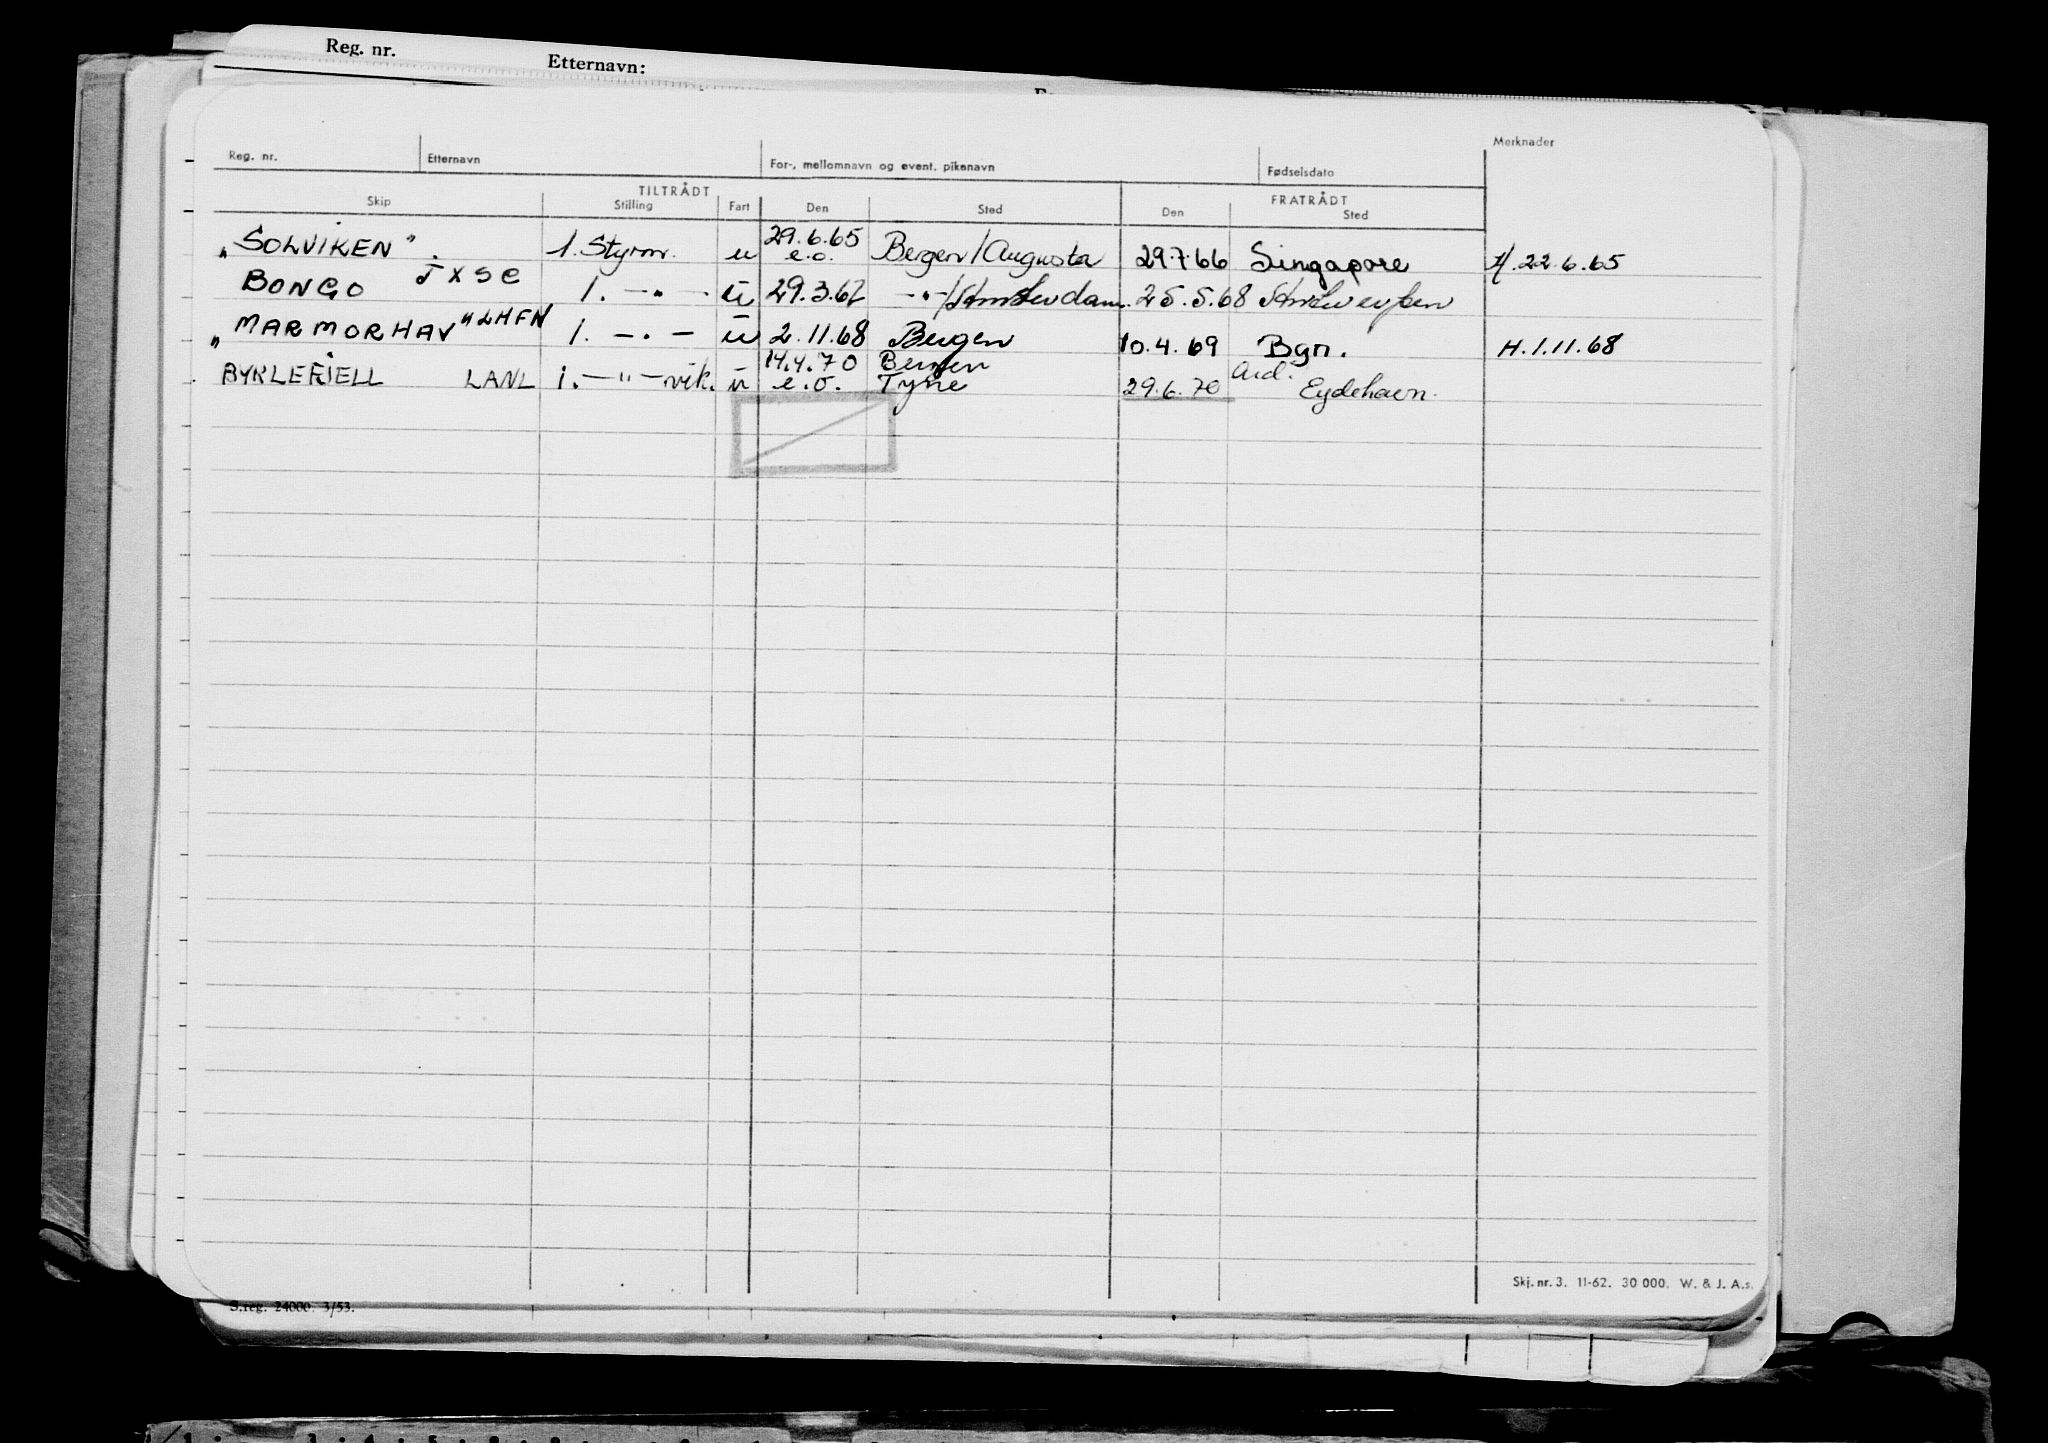 Reg. nr. Etternavn:
Merknader
Reg. nr. Etternavn For-, mellomnavn og event. pikenavn Fødselsdato
TILTRÅDT FRATRÅDT
Skip Stilling Fart Den Sted Den Sted
"SOLVIKEN" 1. Styrm. u 29.6.65 e.o. Bergen/Augusta 29.7.66 Singapore H. 22.6.65
BONGO JXSC 1. -"- u 29.3.67 -"-/Amsterdam 25.5.68 Antwerpen
"MARMORHAV" LHFN 1. -"- u 2.11.68 Bergen 10.4.69 Bgn. H.1.11.68
BYKLEFJELL LANL 1. -"- vik. u 14.4.70 e.o. Bergen Tyne 29.6.70 Ard. Eydehavn.
Skj. nr. 3. 11-62. 30 000. W. & J. A.s.
S.reg. 24000. 3/53.